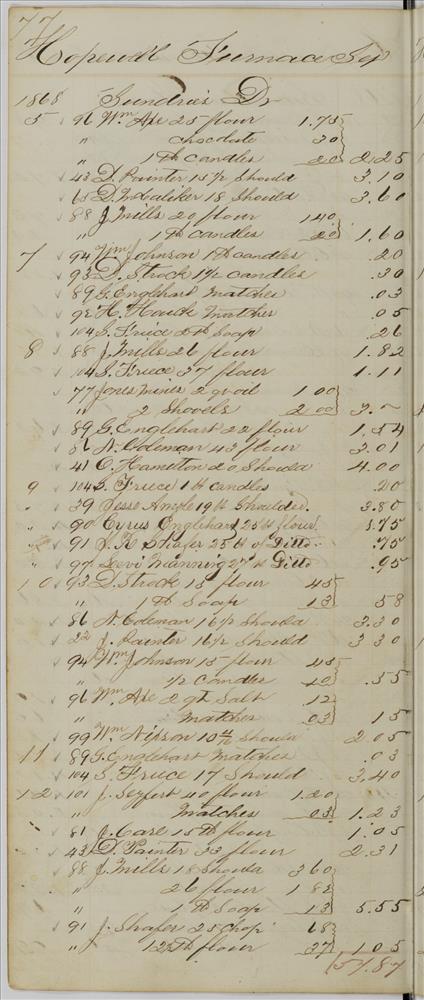 77
Hopewell Furnace Sep
1868 Sundries Dr
5 96 Wm Axe 25 flour 1.75
" chocolate 30
" 1 lb candles 20 2.25
43 D. Painter 15 1/2 Should 3.10
65 D. 18 Should 3.60
88 J. Mills 20 flour 1 40
" 1 lb candles 20 1.60
7 94 Wm Johnson 1 lb candles .20
93 D. Strock 1 1/2 candles .30
89 G. Englehart matches .03
92 H. Hauck matches .05
104 S. Fruce lb Soap 26
8 88 J. Mills 26 flour 1.82
104 S. Fruce 37 flour 1.11
77 Jones mines 2 qr oil 1 00
" 2 Shovels 2 00 3.~
89 G. Englehart 22 flour 1.54
86 N. Coleman 43 flour 3.01
41 C. Hamilton 20 Should 4.00
9 104 S. Fruce 1 lb candles .20
" 39 Jesse Angle 19 lb Shoulder. 3.80
" 90 Cyrus Englehart 25 lb flour. 1.75
" 91 J. K. Shafer 25 lb of Ditto .75
" 97 Levi Manning 27 lb Ditto .95
10 93 D. Strock 15 flour 45
" 1 lb Soap 13 58
86 N. Coleman 16 1/2 Should 3.30
22 J. Painter 16 1/2 Should 3 30
94 Wm Johnson 15 flour 45
" 1/2 candles 10 .55
96 Wm Axe 2 qt Salt 12
" matches 03 15
99 Wm Nipson 10 Should 2.05
11 89 G. Englehart Matches .03
104 S. Fruce 17 Should 3.40
12 101 J. Seyfert 40 flour 1.20
" Matches 03 1.23
81 J. Care 15 lb flour 1.05
43 D. Painter 33 flour 2.31
88 J. Mills 18 Should 3 60
" 26 flour 1 82
" 1 lb Soap 13 5.55
91 J. Shafer 25 Chop 68
" 12 lb flour 37 1 05
57.87